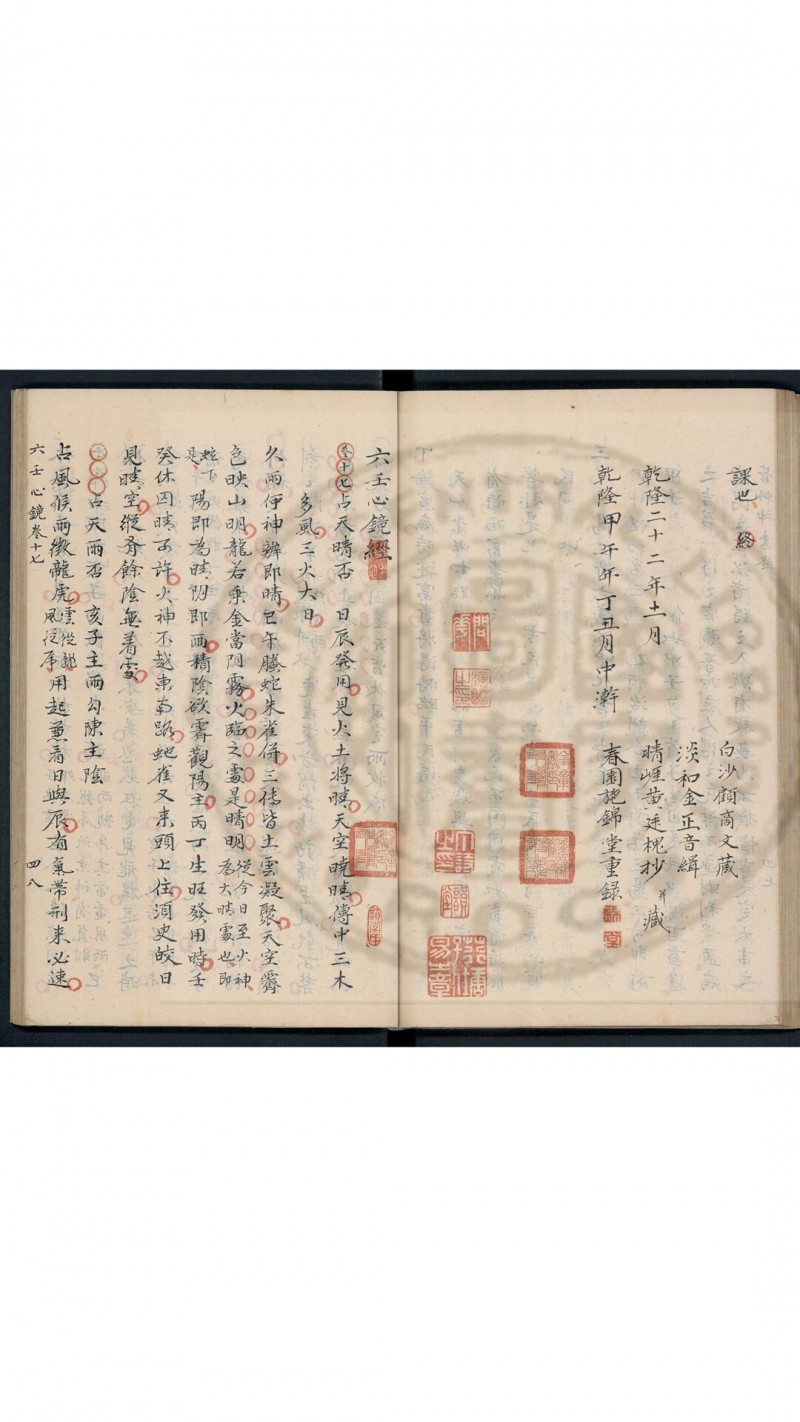 課也
終
乾隆二十二年十一月
乾隆甲午年丁丑月中澣
白沙顧商文藏
淡和金正音緝
晴崕黃廷槐抄并藏
春園施錦堂重錄
六壬心鏡經
卷十七占天晴否 日辰發用見火土將晴天空曉晴傳中三木
多風三火大日
久雨伊神辨即晴巳午螣蛇朱雀併三傳皆土雲凝聚天空霽
色映山明龍若乘金當阴霧火臨之處是晴明從今日至火神為大晴處也即
是蛇下陽即為晴阴即雨積陰欲霽觀陽主丙丁生旺發用時壬
癸休囚晴可許火神不越東南路蛇雀又来頭上住須臾皎日
見晴空縱有餘陰無着處
占天雨否 亥子主雨勾陳主陰
占風候雨徵龍虎雲從龍風從虎用起兼看日與辰有氣帶刑来必速
六壬心鏡卷十七
四八